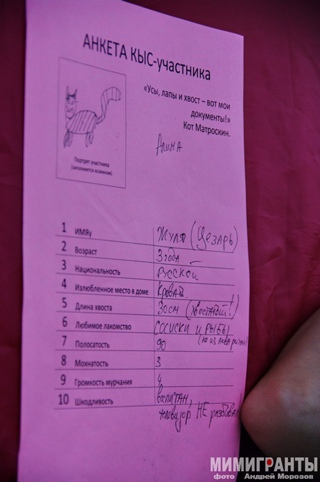 АНКЕТА КЫС-участника
«Усы, лапы и хвост – вот мои
документы!»
Кот Матроскин.
Алина
Портрет участника
(заполняется хозяином)
1 ИМЯу Жуля (Цезарь)
2 Возраст 3 года
3 Национальность Русской
4 Излюбленное место в доме Кровать
5 Длина хвоста 30см
6 Любимое лакомство Сосиски и рыба
7 Полосатость 90
8 Мохнатость 3
9 Громкость мурчания 4
10 Шкодливость воспитан,
НЕ
МИМИГРАНТЫ
фото Андрей Морозов